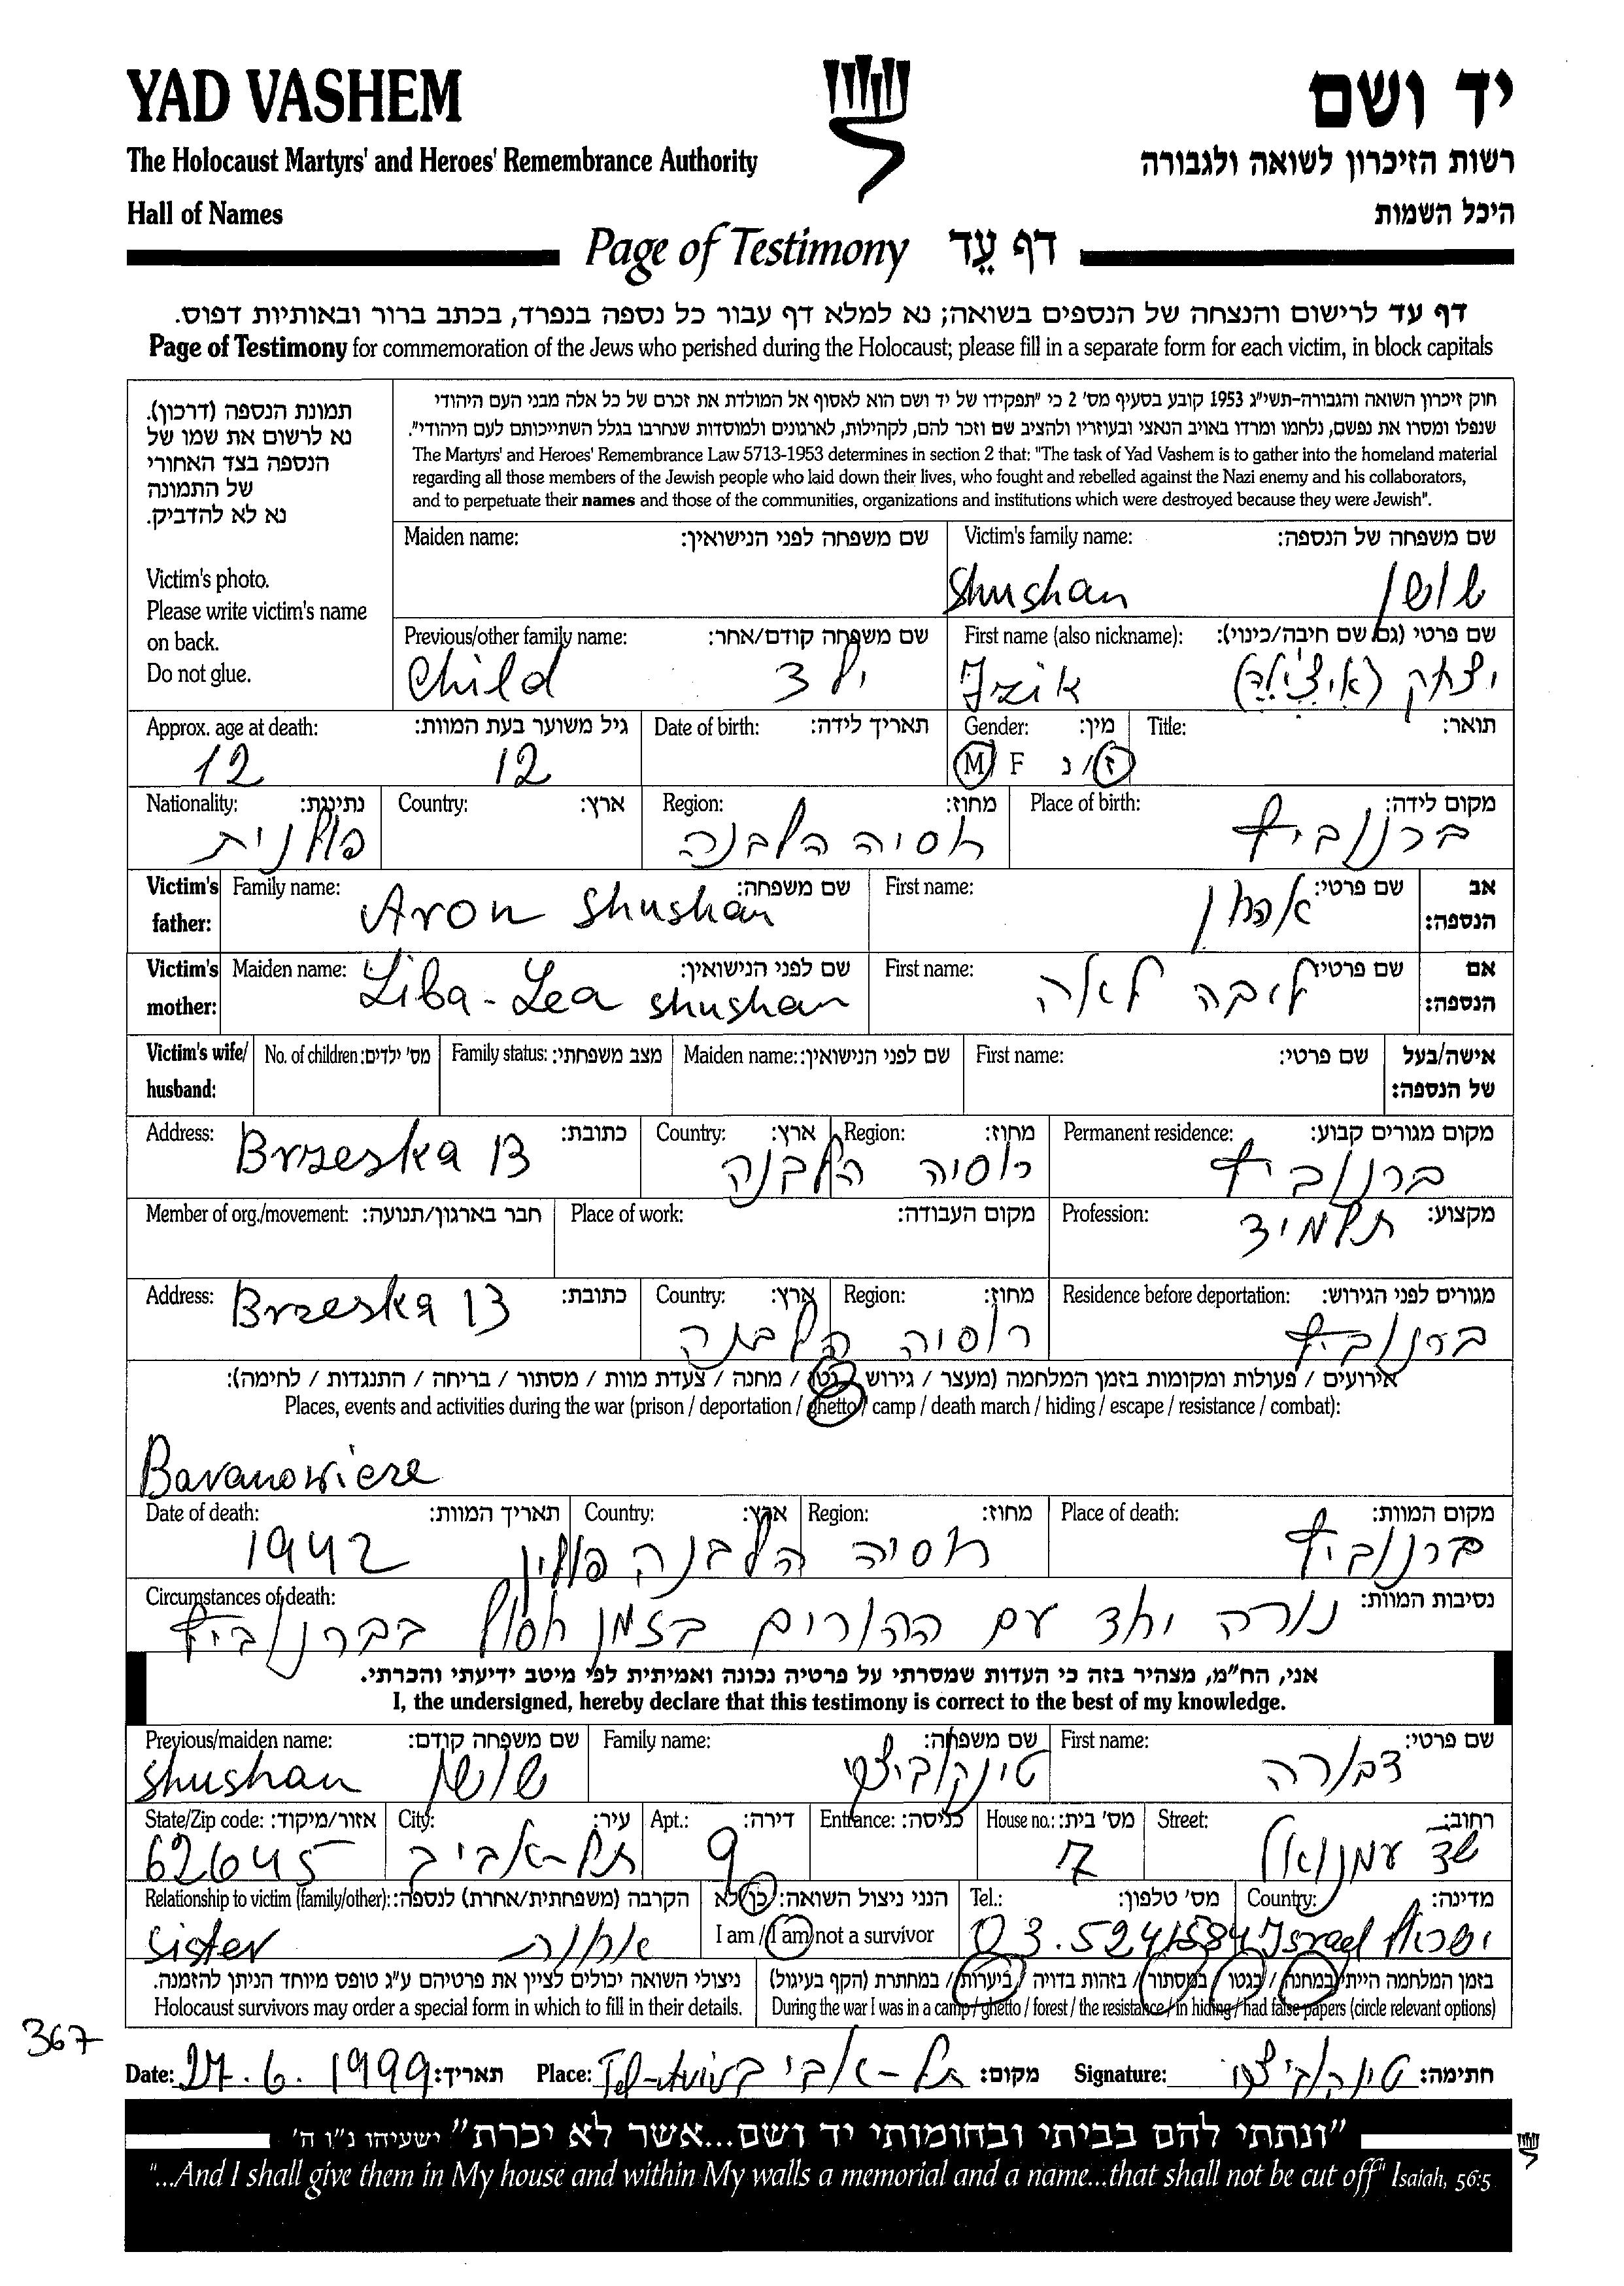 YAD VASHEM
יד ושם
The Holocaust Martyrs' and Heroes' Remembrance Authority
רשות הזיכרון לשואה ולגבורה
Hall of Names
היכל השמות
Page of Testimony דף עֵד
דף עד לרישום והנצחה של הנספים בשואה; נא למלא דף עבור כל נספה בנפרד, בכתב ברור ובאותיות דפוס.
Page of Testimony for commemoration of the Jews who perished during the Holocaust; please fill in a separate form for each victim, in block capitals
תמונת הנספה (דרכון).
נא לרשום את שמו של
הנספה בצד האחורי
של התמונה
נא לא להדביק.
Victim's photo.
Please write victim's name
on back.
Do not glue.
חוק זיכרון השואה והגבורה-תשי"ג 1953 קובע בסעיף מס' 2 כי "תפקידו של יד ושם הוא לאסוף אל המולדת את זכרם של כל אלה מבני העם היהודי
שנפלו ומסרו את נפשם, נלחמו ומרדו באויב הנאצי ובעוזריו ולהציב שם וזכר להם, לקהילות, לארגונים ולמוסדות שנחרבו בגלל השתייכותם לעם היהודי".
The Martyrs' and Heroes' Remembrance Law 5713-1953 determines in section 2 that: "The task of Yad Vashem is to gather into the homeland material
regarding all those members of the Jewish people who laid down their lives, who fought and rebelled against the Nazi enemy and his collaborators,
and to perpetuate their names and those of the communities, organizations and institutions which were destroyed because they were Jewish".
Maiden name: שם משפחה לפני הנישואין:
Victim's family name: שם משפחה של הנספה:
Shushan שושן
Previous/other family name: שם משפחה קודם/אחר:
Child ילד
First name (also nickname): שם פרטי (גם שם חיבה/כינוי):
Izik יצחק (איצ'לה)
Approx. age at death: גיל משוער בעת המוות:
12 12
Date of birth: תאריך לידה:
Gender: מין:
M F ז/נ
Title: תואר:
Nationality: נתינות:
פולנית
Country: ארץ:
Region: מחוז:
רוסיה הלבנה
Place of birth: מקום לידה:
ברנוביץ
Victim's father: Family name: שם משפחה:
Aron Shushan
First name: שם פרטי: אב הנספה:
אהרן
Victim's mother: Maiden name: שם לפני הנישואין:
Liba-Lea shushan
First name: שם פרטי: אם הנספה:
ליבה לאה
Victim's wife/husband: No. of children: מס' ילדים: Family status: מצב משפחתי: Maiden name: שם לפני הנישואין: First name: שם פרטי: אישה/בעל של הנספה:
Address: כתובת:
Brzeska 13
Country: ארץ: Region: מחוז:
רוסיה הלבנה
Permanent residence: מקום מגורים קבוע:
ברנוביץ
Member of org./movement: חבר בארגון/תנועה:
Place of work: מקום העבודה:
Profession: מקצוע:
תלמיד
Address: כתובת:
Brzeska 13
Country: ארץ: Region: מחוז:
רוסיה הלבנה
Residence before deportation: מגורים לפני הגירוש:
ברנוביץ
אירועים / פעולות ומקומות בזמן המלחמה (מעצר / גירוש / גטו / מחנה / צעדת מוות / מסתור / בריחה / התנגדות / לחימה):
Places, events and activities during the war (prison / deportation / ghetto / camp / death march / hiding / escape / resistance / combat):
Baranowicze
Date of death: תאריך המוות:
1942
Country: ארץ: Region: מחוז:
רוסיה הלבנה פולין
Place of death: מקום המוות:
ברנוביץ
Circumstances of death: נסיבות המוות:
נורה יחד עם ההורים בזמן חסול בברנוביץ
אני, הח"מ, מצהיר בזה כי העדות שמסרתי על פרטיה נכונה ואמיתית לפי מיטב ידיעתי והכרתי.
I, the undersigned, hereby declare that this testimony is correct to the best of my knowledge.
Previous/maiden name: שם משפחה קודם:
Shushan שושן
Family name: שם משפחה:
First name: שם פרטי:
דבורה
State/Zip code: אזור/מיקוד:
62645
City: עיר:
תל-אביב
Apt.: דירה:
9
Entrance: כניסה:
House no.: מס' בית:
17
Street: רחוב:
עמנואל
Relationship to victim (family/other): הקרבה (משפחתית/אחרת) לנספה:
Sister אחות
הנני ניצול השואה: כן/לא
I am / I am not a survivor
Tel.: מס' טלפון:
03.5241584
Country: מדינה:
Israel ישראל
ניצולי השואה יכולים לציין את פרטיהם ע"ג טופס מיוחד הניתן להזמנה.
Holocaust survivors may order a special form in which to fill in their details.
בזמן המלחמה הייתי במחנה / בגטו / במסתור / בזהות בדויה / ביערות / במחתרת (הקף בעיגול)
During the war I was in a camp / ghetto / forest / the resistance / in hiding / had false papers (circle relevant options)
367
Date: 27.6.1999 תאריך: Place: Tel-Aviv תל-אביב מקום: Signature: חתימה:
"ונתתי להם בביתי ובחומותי יד ושם...אשר לא יכרת" ישעיהו נ"ו ה'
"...And I shall give them in My house and within My walls a memorial and a name...that shall not be cut off" Isaiah, 56:5